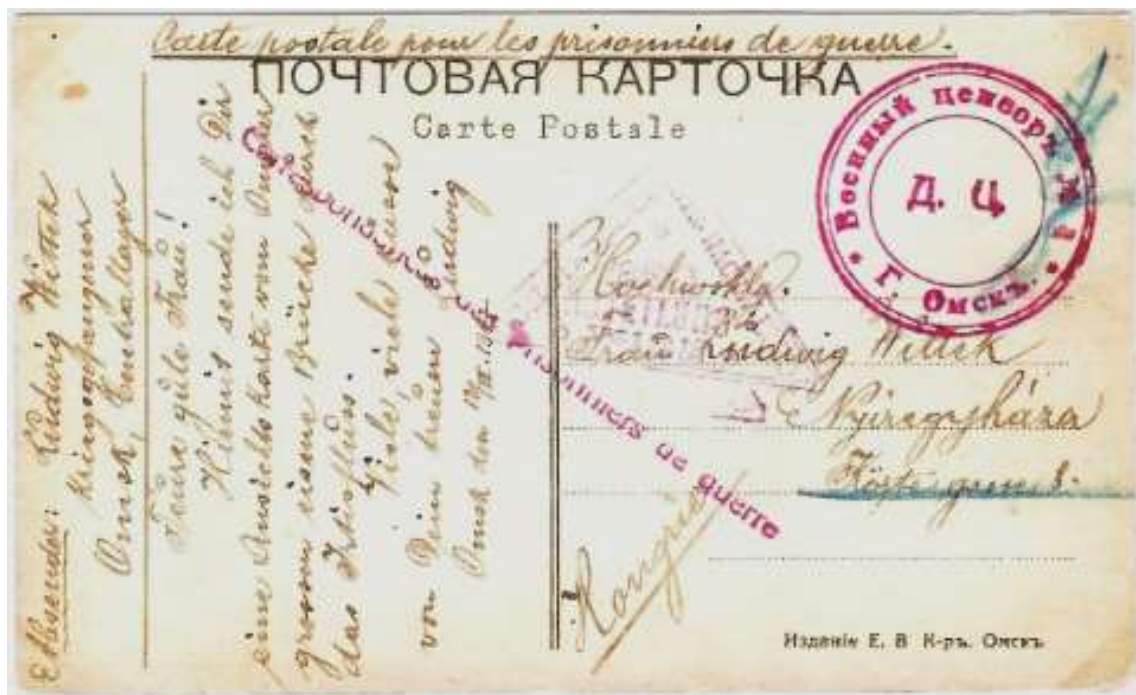 Carte postale pour les prisonniers de guerre.
ПОЧТОВАЯ КАРТОЧКА
Carte Postale
Военный цензоръ № 1
Д. Ц.
* Г. Омскъ. *
Correspondance des Prisonniers de guerre
Absender: Ludwig Wittek
Kriegsgefangener
Omsk,
Teure gute Frau!
Hiemit sende ich Dir
eine Ansichtskarte von
grossen eisene Brücke durch
das Irtisfluss.
Viele, viele
von Dein treuen Ludwig
Omsk den
Hochwohlg.
Frau Ludwig Wittek
Nyíregyháza
Hongrie
Изданіе Е. В К-ръ. Омскъ.